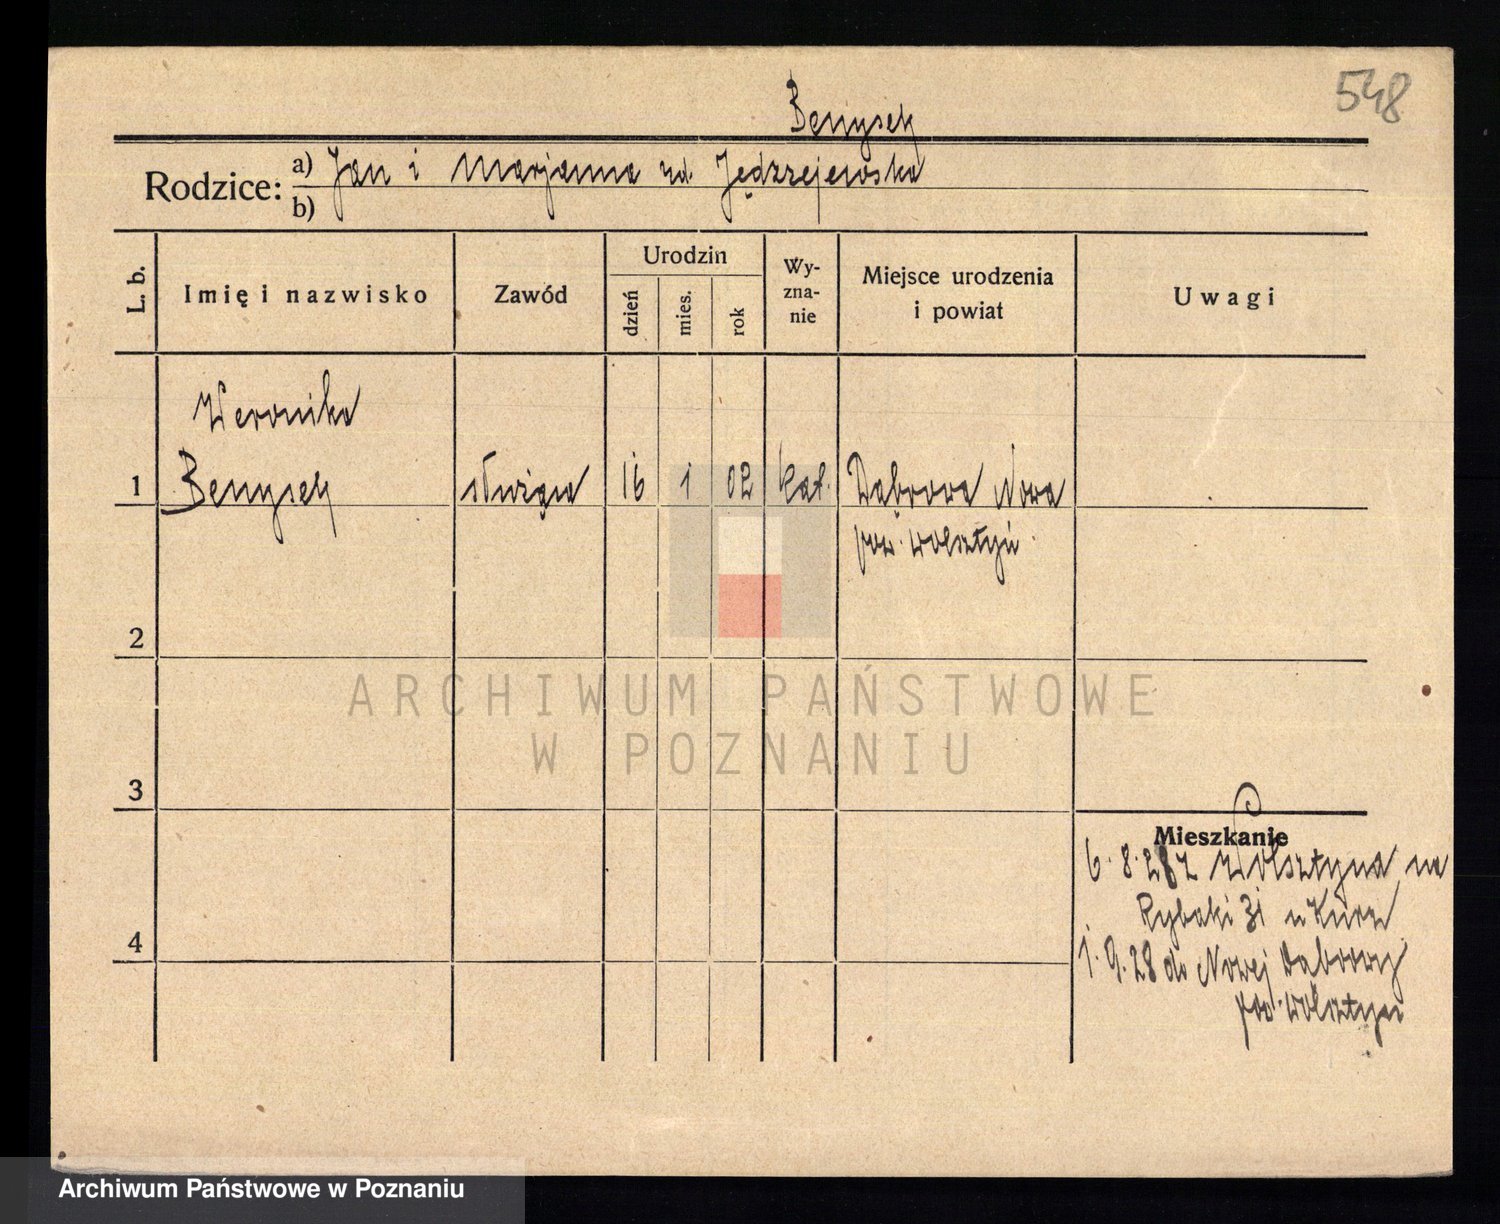 548
Benysek
Rodzice: a) Jan i Marjanna zd. Jędrzejewska
b)
L. b.
Imię i nazwisko
Zawód
Urodzin
dzień
mies.
rok
Wy-
zna-
nie
Miejsce urodzenia
i powiat
Uwagi
Weronika
1 Benysek służąca 16 1 02 kat. Dąbrowa Nowa
pow. Wolsztyn
2
ARCHIWUM PAŃSTWOWE
W POZNANIU
3
Mieszkanie
6.8.28 z Wolsztyna na
Rybaki 31 u
4
1.9.28 do Nowej Dąbrowy
pow. Wolsztyn
Archiwum Państwowe w Poznaniu